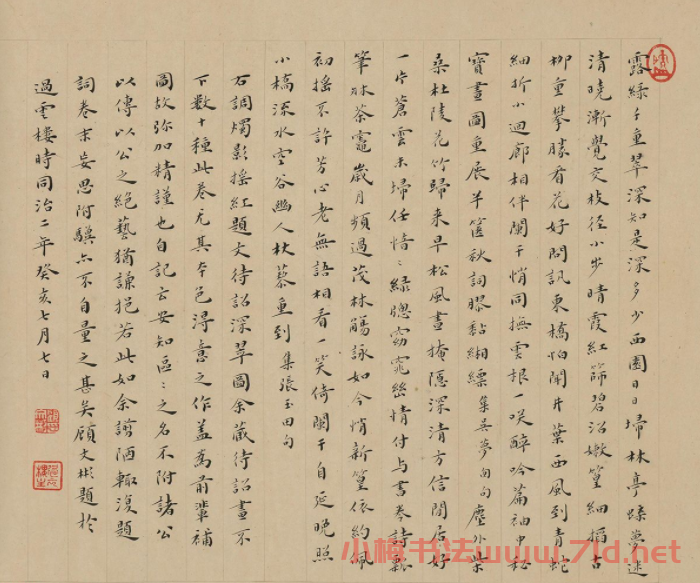 露緑千重翠深知是深多少西園日日埽林亭蛛巢迷
清曉漸覺交枝徑小步晴霞紅篩碧沼嫩篁細搯古
柳重攀勝看花好問訊東橋怕聞片葉西風到青蛇
細折小迴廊相伴闌干悄同撫雲根一笑醉吟篇袖中秘
寶畫圖重展半篋秋詞膠黏緗縹 集吳夢窗句 塵外柴
桑杜陵花竹歸來早松風晝掩隱深清方信閒居好
一片蒼雲未埽任愔愔緑窗窈窕幽情付与書卷詩瓢
筆牀茶竈歲月頻過茂林觴詠如今悄新篁依約佩
初搖不許芳心老無語相看一笑倚闌干自延晚照
小橋流水空谷幽人林慕重到 集張玉田句
右調燭影搖紅題文待詔深翠圖余藏待詔畫不
下數十種此卷尤其本色得意之作蓋為前輩補
圖故弥加精謹也自記云安知區區之名不附諸公
以傳以公之絕藝猶謙挹若此如余譾陋輒復題
詞卷末妄思附驥亦不自量之甚矣顧文彬題於
過雲樓時同治二年癸亥七月七日
小梅书法www.7ld.net